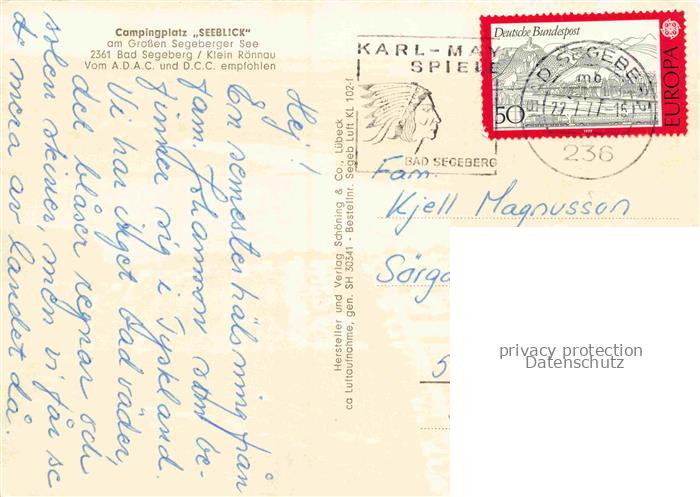 Campingplatz „SEEBLICK"
am Großen Segeberger See
2361 Bad Segeberg / Klein Rönnau
Vom A.D.A.C. und D.C.C. empfohlen
Hej!
En semesterhälsning från
fam. Johansson som be-
finner sig i Tyskland.
Vi har inget bad väder,
det blåser regnar och
solen skiner, men vi får se
de mera av landet då.
Hersteller und Verlag Schöning & Co., Lübeck
ca Luftaufnahme, gen. SH 30341 - Bestellnr. Segeb Luft KL 102-1
KARL-MAY
SPIELE
BAD SEGEBERG
Deutsche Bundespost
50
EUROPA
1977
BAD SEGEBERG
mb
22.7.77-15
236
Fam.
Kjell Magnusson
Sörga
5
privacy protection
Datenschutz